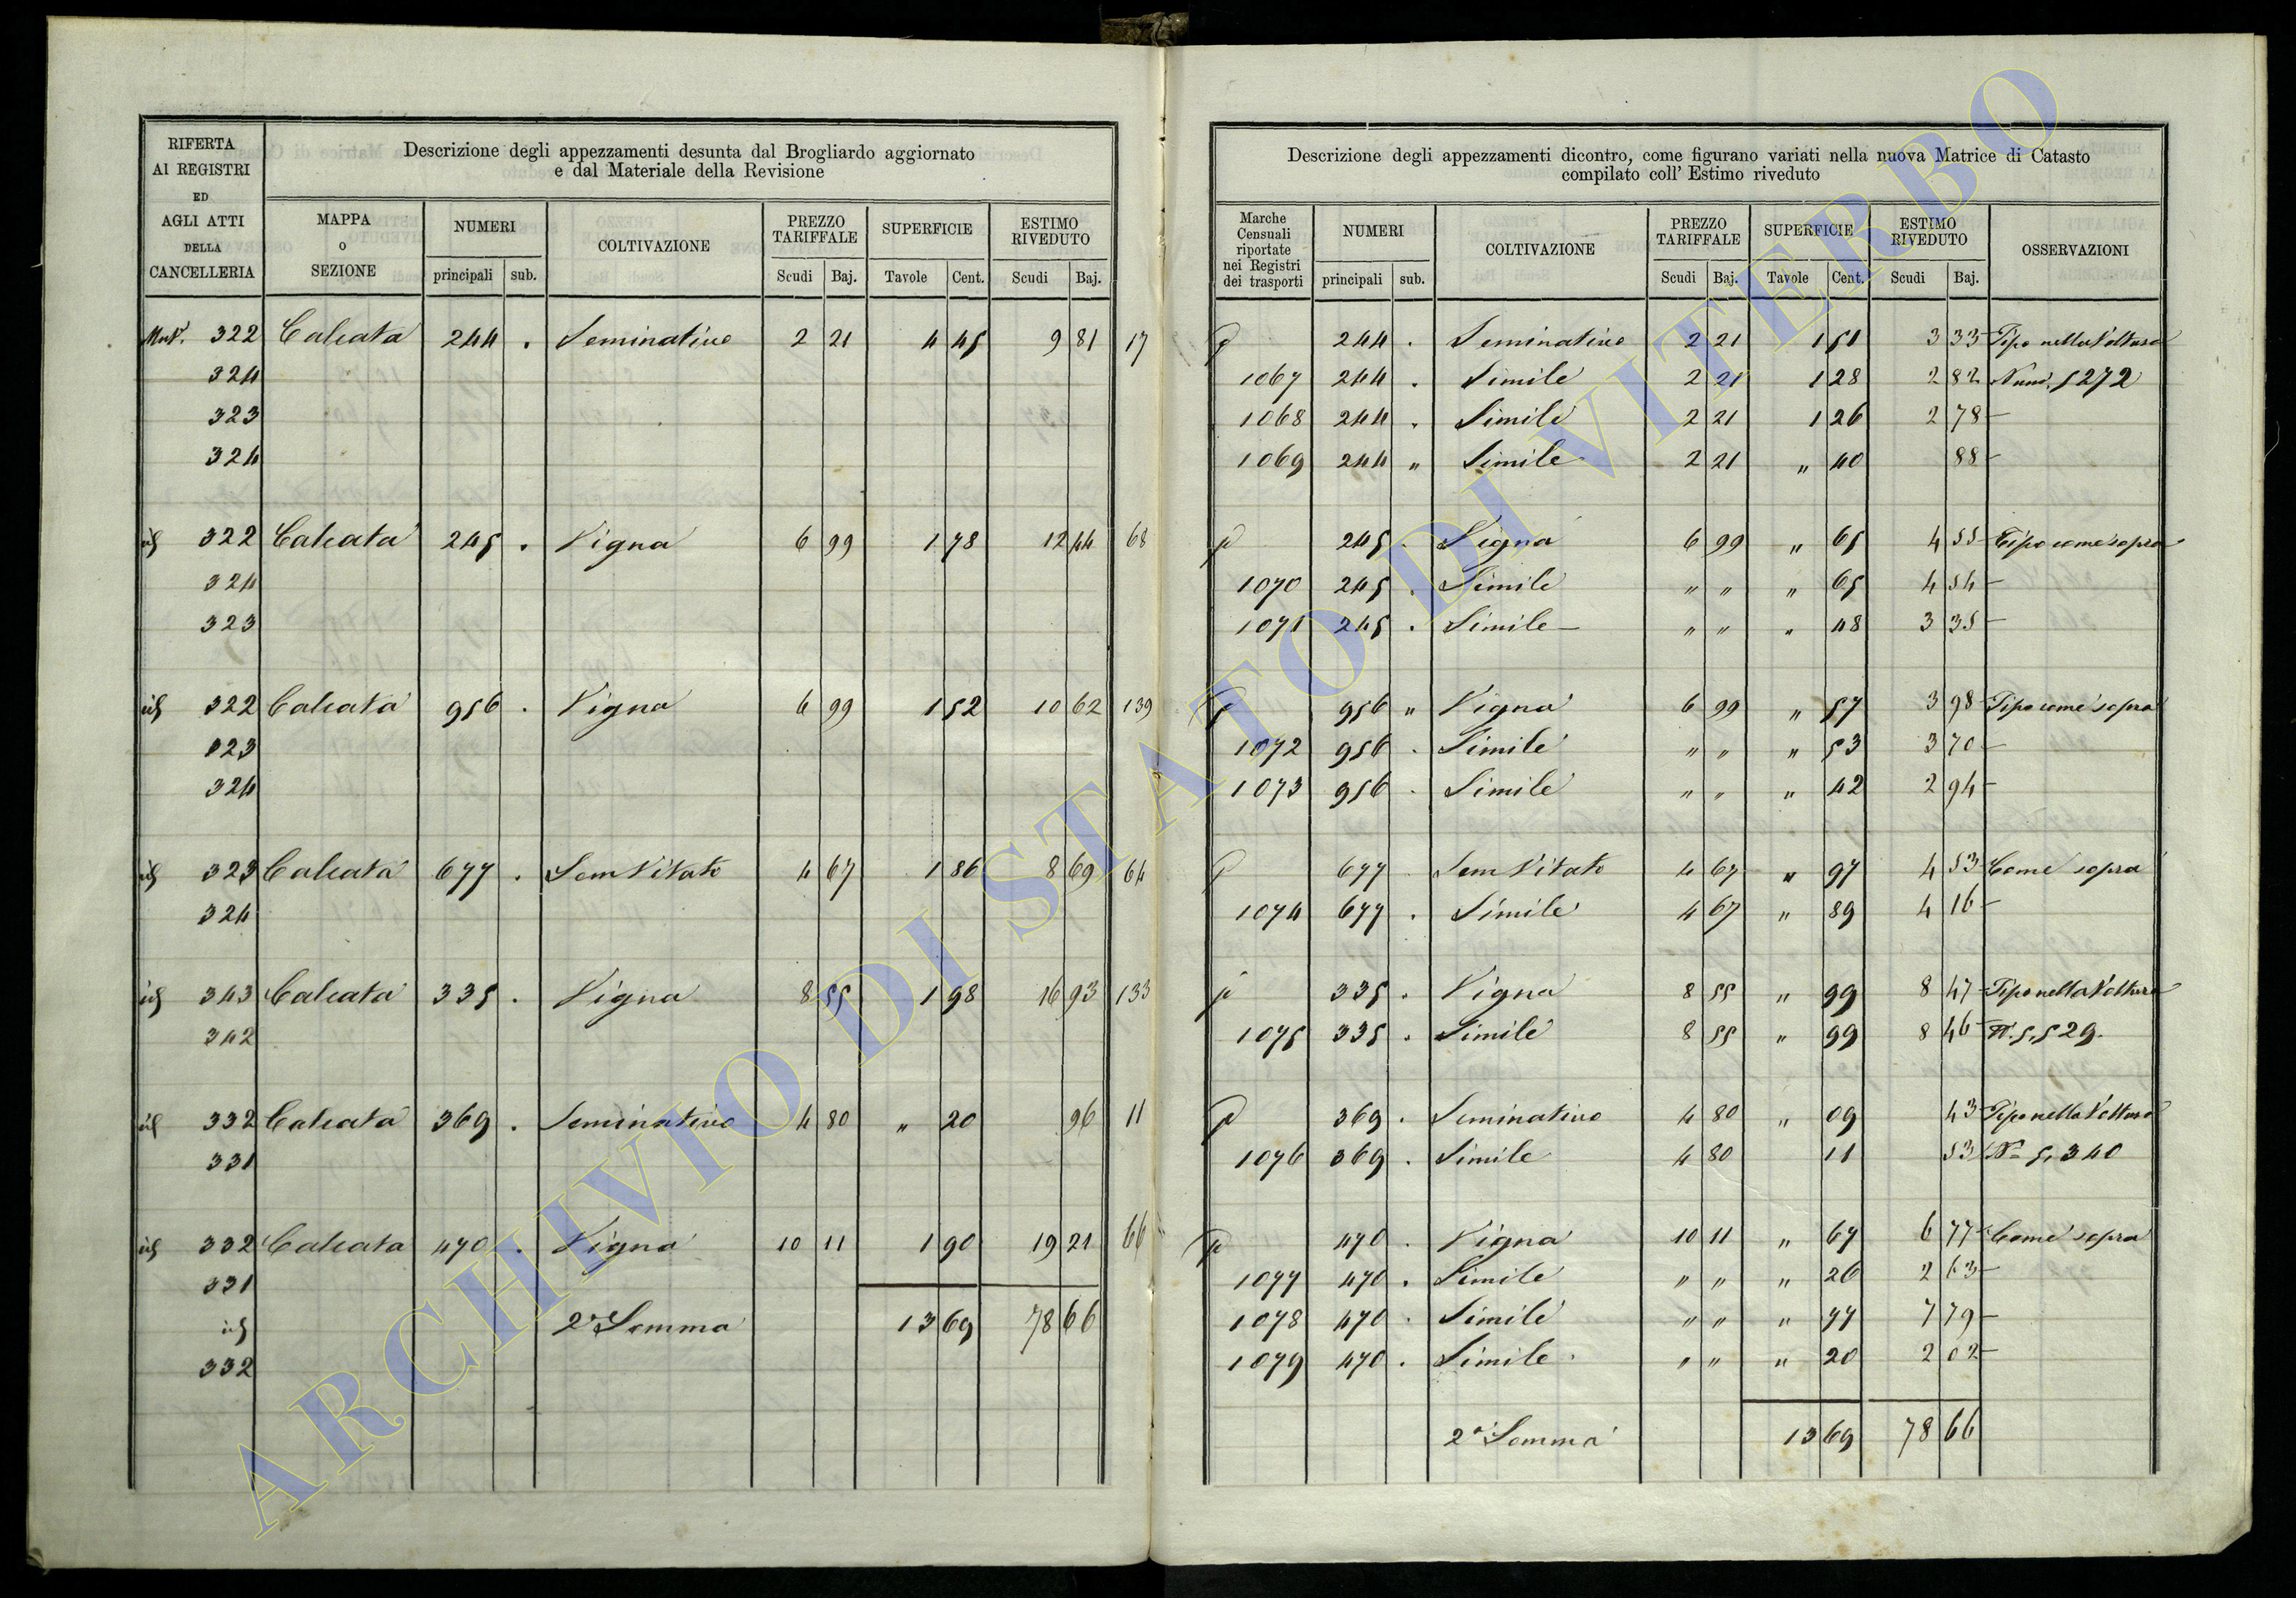 RIFERTA
AI REGISTRI
ED
AGLI ATTI
DELLA
CANCELLERIA
Descrizione degli appezzamenti desunta dal Brogliardo aggiornato
e dal Materiale della Revisione
MAPPA
o
SEZIONE
NUMERI
principali sub.
COLTIVAZIONE
PREZZO
TARIFFALE
Scudi Baj.
SUPERFICIE
Tavole Cent.
ESTIMO
RIVEDUTO
Scudi Baj.
322 Calcata 244 . Seminativo 2 21 4 45 9 81 17
324
323
324
id 322 Calcata 245 . Vigna 6 99 1 78 12 44 68
324
323
id 322 Calcata 956 . Vigna 6 99 1 52 10 62 139
323
324
id 323 Calcata 677 . Sem Vitato 4 67 1 86 8 69 64
324
id 343 Calcata 335 . Vigna 8 55 1 98 16 93 133
342
id 332 Calcata 369 . Seminativo 4 80 " 20 96 11
331
id 332 Calcata 470 . Vigna 10 11 1 90 19 21 66
331
id 2a Somma 13 69 78 66
332
Descrizione degli appezzamenti dicontro, come figurano variati nella nuova Matrice di Catasto
compilato coll' Estimo riveduto
Marche
Censuali
riportate
nei Registri
dei trasporti
NUMERI
principali sub.
COLTIVAZIONE
PREZZO
TARIFFALE
Scudi Baj.
SUPERFICIE
Tavole Cent.
ESTIMO
RIVEDUTO
Scudi Baj.
OSSERVAZIONI
p 244 . Seminativo 2 21 1 51 3 33 Tipo nella Voltura
1067 244 . Simile 2 21 1 28 2 82 Num. 5272
1068 244 . Simile 2 21 1 26 2 78 —
1069 244 " Simile 2 21 " 40 88 —
p 245 . Vigna 6 99 " 65 4 55 Tipo come sopra
1070 245 . Simile " " " 65 4 54 —
1071 245 . Simile — " " " 48 3 35 —
p 956 " Vigna 6 99 " 57 3 98 Tipo come sopra
1072 956 . Simile " " " 53 3 70 —
1073 956 . Simile " " " 42 2 94 —
p 677 . Sem Vitato 4 67 " 97 4 53 Come sopra
1074 677 . Simile 4 67 " 89 4 16 —
p 335 . Vigna 8 55 " 99 8 47 Tipo nella Voltura
1075 335 . Simile 8 55 " 99 8 46 N. 5,529.
p 369 . Seminativo 4 80 " 09 43 Tipo nella Voltura
1076 369 . Simile 4 80 11 53 N= 5,340
p 470 . Vigna 10 11 " 67 6 77 Come sopra
1077 470 . Simile " " " 26 2 63 —
1078 470 . Simile " " " 77 7 79 —
1079 470 . Simile . " " " 20 2 02 —
2a Somma 13 69 78 66
ARCHIVIO DI STATO DI VITERBO